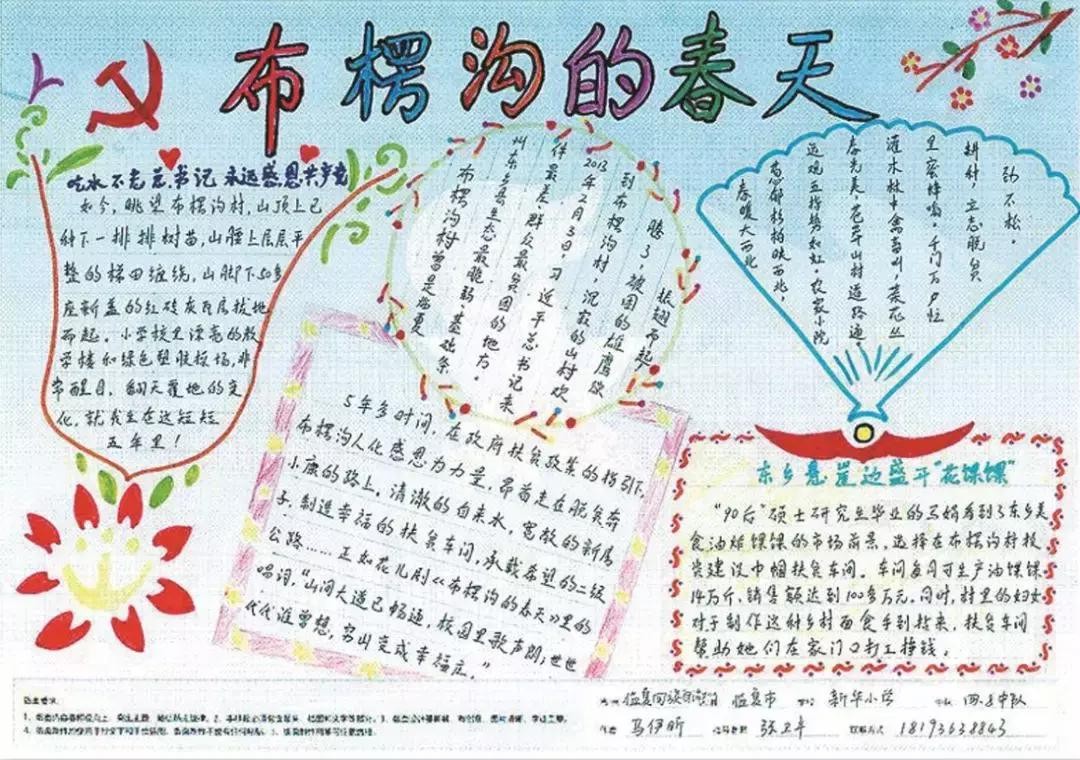 布楞沟的春天
吃水不忘总书记 永远感恩共产党
如今，眺望布楞沟村，山顶上已
种下一排排树苗，山腰上层层平
整的梯田缠绕，山脚下50多
座新盖的红砖灰瓦房拔地
而起。小学校里漂亮的教
学楼和绿色塑胶操场，非
常醒目。翻天覆地的变
化，就发生在这短短
五年里！
布楞沟村曾是临夏
州东乡县生态最脆弱、基础条
件最差、群众最贫困的地方。
2013年2月3日，习近平总书记来
到布楞沟村，沉寂的山村欢
腾了，被困的雄鹰欲
振翅而起。
春暖大西北
葱郁杨柏映西北，
远观五指势如虹。农家小院
春光美，花草山村道路通。
灌木林中禽鸟叫，菜花丛
里蜜蜂鸣。千门万户忙
耕村，立志脱贫
劲不松。
5年多时间，在政府扶贫政策的指引下，
布楞沟人化感恩为力量，昂首走在脱贫奔
小康的路上，清澈的自来水，宽敞的新房
子，制造幸福的扶贫车间，承载希望的二级
公路……正如花儿剧《布楞沟的春天》里的
唱词，“山间大道已畅通，校园里歌声朗；世世
代代谁曾想，穷山变成幸福庄。”
东乡悬崖边盛开“花馃馃”
“90后”硕士研究生毕业的马娟看到了东乡美
食油炸馃馃的市场前景，选择在布楞沟村投
资建设巾帼扶贫车间。车间每月可生产油馃馃
14万斤，销售额达到100多万元。同时，村里的妇女
对于制作这种乡村面食手到拈来，扶贫车间
帮助她们在家门口打工挣钱。
临夏回族自治州 临夏市 新华小学 四.2中队
马伊昕 张卫平 联系方式 18193638843